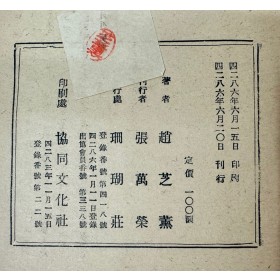 四二八六年六月一五日 印刷
四二八六年六月二〇日 刊行
定價 一〇〇圜
著者 趙芝薰
刊行者 張萬榮
行處 珊瑚莊
登錄番號 第四一八號
四二八六年一月一一日登錄
出協會員番號 第三三八號
印刷處 協同文化社
四二八三年一一月一五日
登錄番號 第二二號